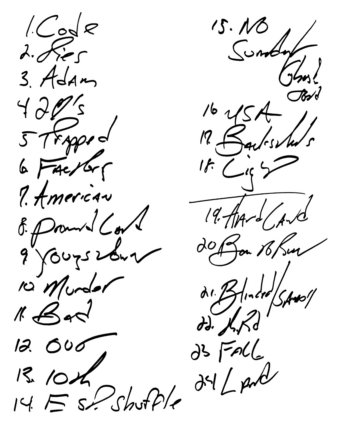 1. Code
2. Ties
3. Adam
4 2
5 Trapped
6 Factory
7. American
8. Promised Land
9 Youngstown
10 Murder
11. Bad
12. Out
13. 10th
14. E St. Shuffle
15. No
Surrender
Ghost
Joad
16 USA
17 Backstreets
18 Light
19. Hard Land
20 Born to Run
21. Blinded/Small
22.
23 Fall
24 Land